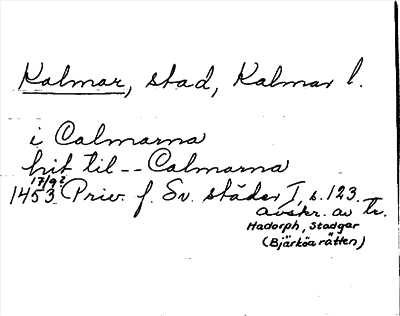 Kalmar, stad, Kalmar l.
i Calmarna
hit til -- Calmarna
17/9?
1453 Priv. f. Sv. städer I, s. 123.
avskr. av Tr.
Hadorph, Stadgar
(Bjärköa rätten)